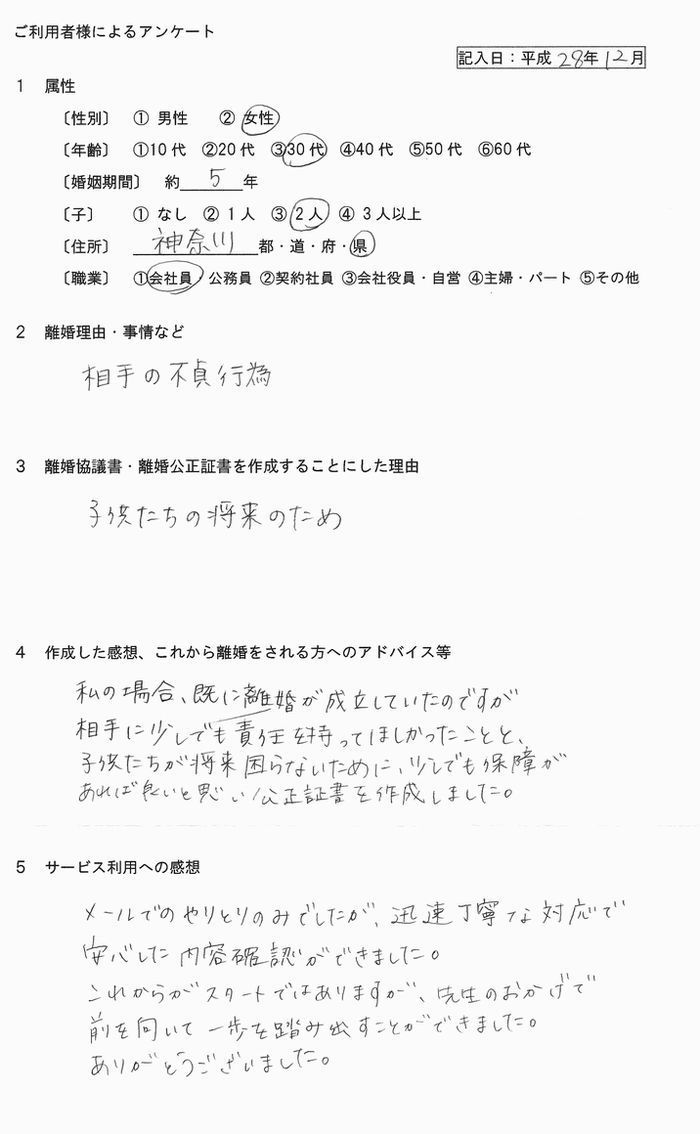 ご利用者様によるアンケート
記入日：平成 28年 12月
1 属性
〔性別〕 ① 男性 ② 女性
〔年齢〕 ①10代 ②20代 ③30代 ④40代 ⑤50代 ⑥60代
〔婚姻期間〕 約 5 年
〔子〕 ① なし ② 1人 ③ 2人 ④ 3人以上
〔住所〕 神奈川 都・道・府・県
〔職業〕 ①会社員 公務員 ②契約社員 ③会社役員・自営 ④主婦・パート ⑤その他
2 離婚理由・事情など
相手の不貞行為
3 離婚協議書・離婚公正証書を作成することにした理由
子供たちの将来のため
4 作成した感想、これから離婚をされる方へのアドバイス等
私の場合、既に離婚が成立していたのですが
相手に少しでも責任を持ってほしかったことと、
子供たちが将来困らないために、少しでも保障が
あれば良いと思い公正証書を作成しました。
5 サービス利用への感想
メールでのやりとりのみでしたが、迅速丁寧な対応で
安心した内容確認ができました。
これからがスタートではありますが、先生のおかげで
前を向いて一歩を踏み出すことができました。
ありがとうございました。